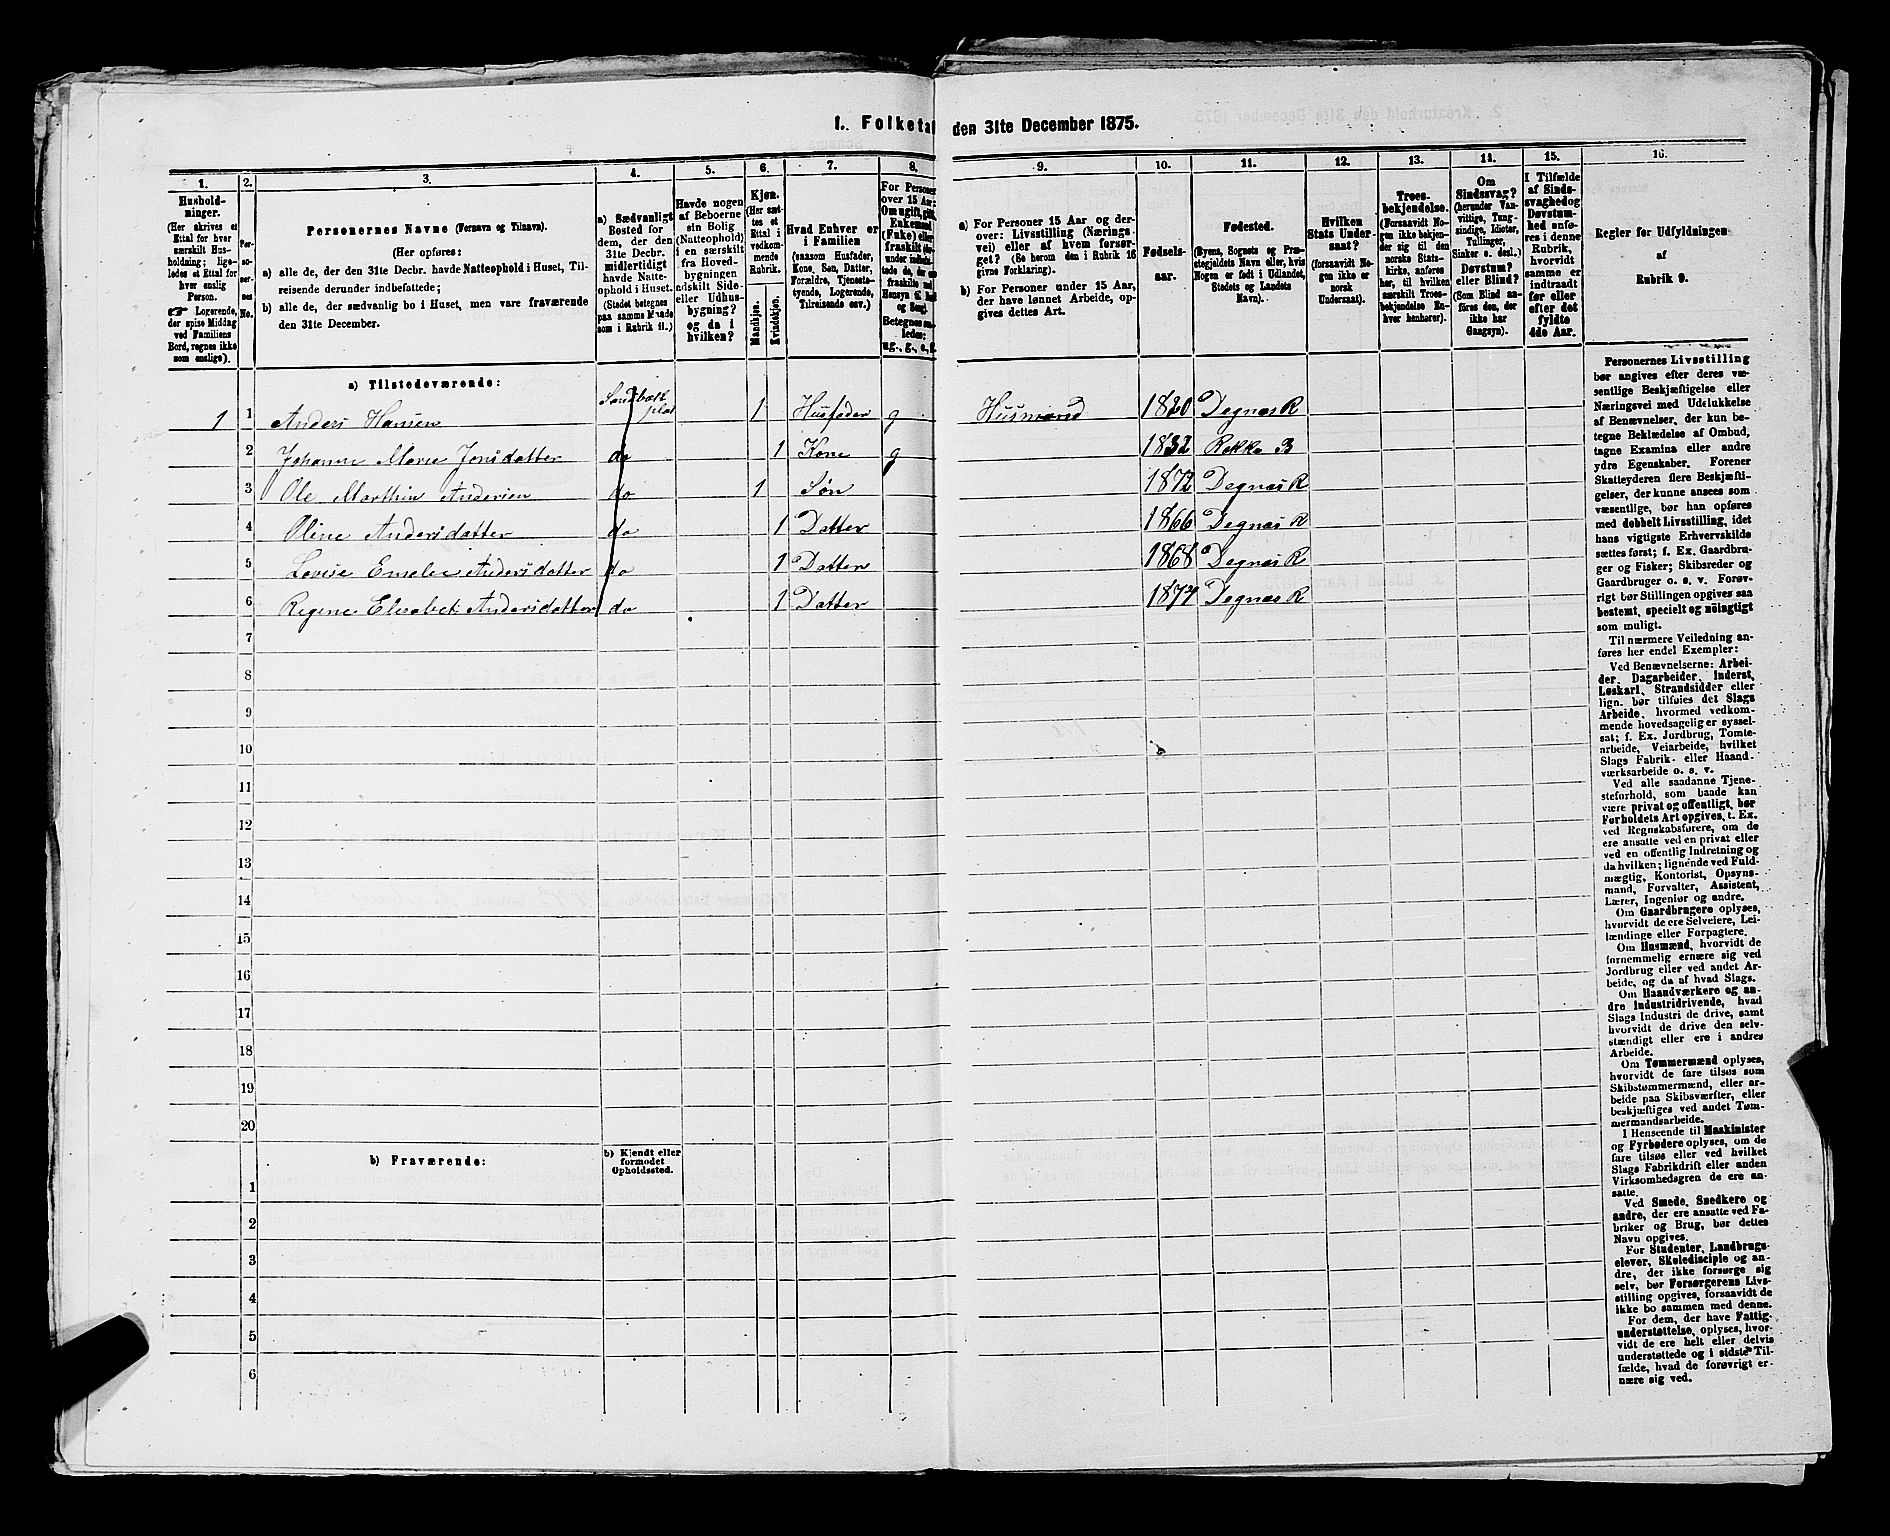 1. Folketal den 31te December 1875.
1. 2. 3. 4. 5. 6. 7. 8. 9. 10. 11. 12. 13. 14. 15. 16.
Hushold-
ninger.
(Her skrives et
Ettal for hver
særskilt Hus-
holdning; lige-
ledes et Ettal for
hver enslig
Person.
☛ Logerende,
der spise Middag
ved Familiens
Bord, regnes ikke
som enslige).
Per-
so-
ner-
nes
No.
Personernes Navne (Fornavn og Tilnavn).
(Her opføres:
a) alle de, der den 31te Decbr. havde Natteophold i Huset, Til-
reisende derunder indbefattede;
b) alle de, der sædvanlig bo i Huset, men vare fraværende
den 31te December.
a) Sædvanligt
Bosted for
dem, der den
31te Decbr.
midlertidigt
havde Natte-
ophold i Huset.
(Stedet betegnes
paa samme Maade
som i Rubrik 11.)
Havde nogen
af Beboerne
sin Bolig
(Natteophold)
i en særskilt
fra Hoved-
bygningen
adskilt Side-
eller Udhus-
bygning?
og da i
hvilken?
Kjøn.
(Her sæt-
tes et
Ettal i
vedkom-
mende
Rubrik.
Mandkjøn.
Kvindekjøn.
Hvad Enhver er
i Familien
(saasom Husfader,
Kone, Søn, Datter,
Forældre, Tjeneste-
tyende, Logerende,
Tilreisende osv.)
For Personer
over 15 Aar:
Om ugift, gift,
Enkemand
(Enke) eller
fraskilt
Betegnes saa-
ledes:
ug., g., e., f.
a) For Personer 15 Aar og der-
over: Livsstilling (Nærings-
vei) eller af hvem forsør-
get? (Se herom den i Rubrik 16
givne Forklaring).
b) For Personer under 15 Aar,
der have lønnet Arbeide, op-
gives dettes Art.
Fødsels-
aar.
Fødested.
(Byens, Sognets og Præ-
stegjeldets Navn eller, hvis
Nogen er født i Udlandet,
Stedets og Landets
Navn).
Hvilken
Stats Under-
saat?
(forsaavidt No-
gen ikke er
norsk
Undersaat).
Troes-
bekjendelse.
(Forsaavidt No-
gen ikke bekjen-
der sig til den
norske Stats-
kirke, anføres
her, til hvilken
særskilt Troes-
bekjendelse En-
hver henhører).
Om
Sindssvag?
(herunder Van-
vittige, Tung-
sindige, Idioter,
Tullinger,
Sinker o. desl.)
Døvstum?
eller Blind?
(Som Blind an-
føres den, der
ikke har
Gangsyn).
I Tilfælde
af Sinds-
svaghed og
Døvstum-
hed anfø-
res i denne
Rubrik,
hvorvidt
samme er
indtraadt
før eller
efter det
fyldte
4de Aar.
Regler for Udfyldningen
af
Rubrik 9.
a) Tilstedeværende:
1 1 Anders Hansen 1 Husfader g Husmand 1820 Degnæs R
2 Johanne Marie Jonsdatter do 1 Kone g 1832 Rakke B
3 Ole Marthin Andersen do 1 Søn 1872 Degnæs R
4 Oline Andersdatter do 1 Datter 1866 Degnæs R
5 Lovise Emelie Andersdatter do 1 Datter 1868 Degnæs R
6 Regine Elisabet Andersdatter do 1 Datter 1874 Degnæs R
7
8
9
10
11
12
13
14
15
16
17
18
19
20
b) Fraværende:
b) Kjendt eller
formodet
Opholdssted.
1
2
3
4
5
6
Personernes Livsstilling
bør angives efter deres væ-
sentlige Beskjæftigelse eller
Næringsvei med Udelukkelse
af Benævnelser, der kun be-
tegne Beklædelse af Ombud,
tagne Examina eller andre
ydre Egenskaber. Forener
Skatteyderen flere Beskjæfti-
gelser, der kunne ansees som
væsentlige, bør han opføres
med dobbelt Livsstilling, idet
hans vigtigste Erhvervskilde
sættes først; f. Ex. Gaardbru-
ger og Fisker; Skibsreder og
Gaardbruger o. s. v. Forøv-
rigt bør Stillingen opgives saa
bestemt, specielt og nøiagtigt
som muligt.
Til nærmere Veiledning an-
føres her endel Exempler:
Ved Benævnelserne: Arbei-
der, Dagarbeider, Inderst,
Løskarl, Strandsidder eller
lign. bør tilføies det Slags
Arbeide, hvormed vedkom-
mende hovedsagelig er syssel-
sat; f. Ex. Jordbrug, Tomte-
arbeide, Veiarbeide, hvilket
Slags Fabrik- eller Haand-
værksarbeide o. s. v.
Ved alle saadanne Tjene-
steforhold, som baade kan
være privat og offentligt, bør
Forholdets Art opgives, t. Ex.
ved Regnskabsførere, om de
ere ansatte ved en privat eller
ved en offentlig Indretning og
da hvilken; lignende ved Fuld-
mægtig, Kontorist, Opsyns-
mand, Forvalter, Assistent,
Lærer, Ingeniør og andre.
Om Gaardbrugere oplyses,
hvorvidt de ere Selveiere, Lei-
lændinge eller Forpagtere.
Om Husmænd, hvorvidt de
fornemmelig ernære sig ved
Jordbrug eller ved andet Ar-
beide, og da af hvad Slags.
Om Haandværkere og an-
dre Industridrivende, hvad
Slags Industri de drive, samt
hvorvidt de drive den selv-
stændigt eller ere i andres
Arbeide.
Om Tømmermænd oplyses,
hvorvidt de fare tilsøs som
Skibstømmermænd, eller ar-
beide paa Skibsværfter, eller
beskjæftiges ved andet Tøm-
mermandsarbeide.
I Henseende til Maskinister
og Fyrbødere oplyses, om de
fare tilsøs eller ved hvilket
Slags Fabrikdrift eller anden
Virksomhedsgren de ere an-
satte.
Ved Smede, Snedkere og
andre, der ere ansatte ved Fa-
briker og Brug, bør dettes
Navn opgives.
For Studenter, Landbrugs-
elever, Skoledisciple og an-
dre, der ikke forsørge sig
selv, bør Forsørgerens Livs-
stilling opgives, forsaavidt de
ikke bo sammen med denne.
For dem, der have Fattig-
understøttelse, oplyses, hvor-
vidt de ere helt eller delvis
understøttede og i sidste Til-
fælde, hvad de forøvrigt er-
nære sig ved.